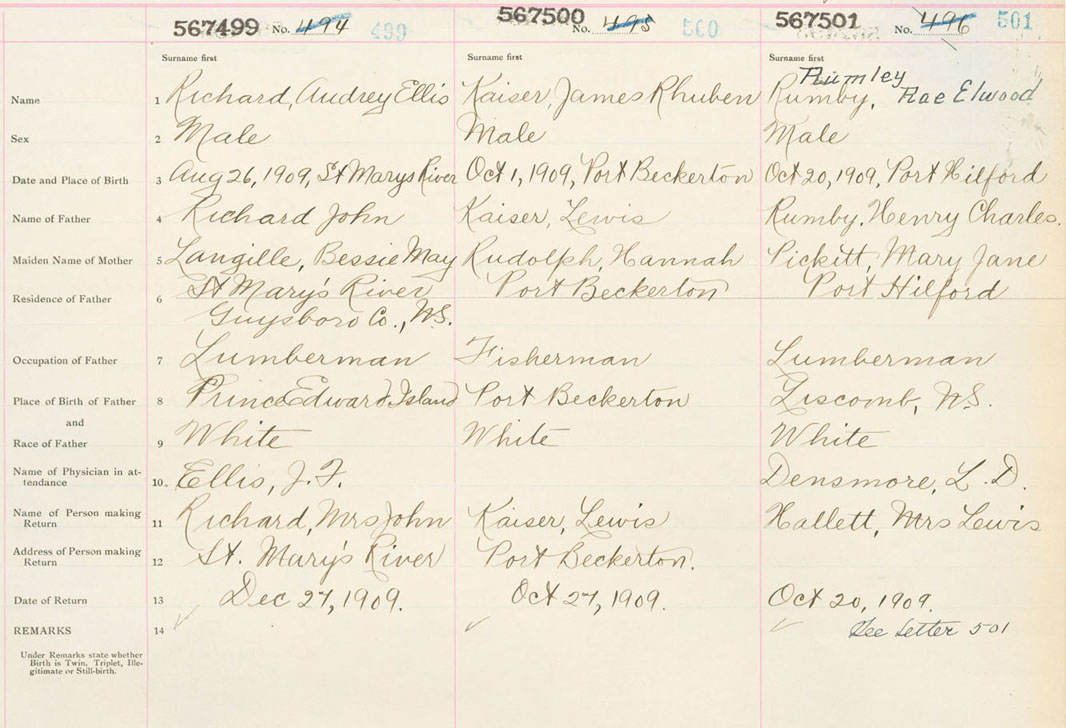 567499 No. 494 499 567500 No. 495 500 567501 No. 496 501
Surname first Surname first Surname first
Rumley
Name 1 Richard, Audrey Ellis Kaiser, James Rhuben Rumby, Rae Elwood
Sex 2 Male Male Male
Date and Place of Birth 3 Aug 26, 1909, St Marys River Oct 1, 1909, Port Beckerton Oct 20, 1909, Port Hilford
Name of Father 4 Richard John Kaiser, Lewis Rumby, Henry Charles.
Maiden Name of Mother 5 Langille, Bessie May Rudolph, Hannah Pickitt, Mary Jane
Residence of Father 6 St Mary's River Port Beckerton Port Hilford
Guysboro Co., N.S.
Occupation of Father 7 Lumberman Fisherman Lumberman
Place of Birth of Father 8 Prince Edward Island Port Beckerton Liscomb, N.S.
and
Race of Father 9 White White White
Name of Physician in at-
tendance 10. Ellis, J. F. Densmore, L. D.
Name of Person making
Return 11 Richard, Mrs John Kaiser, Lewis Hallett, Mrs Lewis
Address of Person making
Return 12 St. Mary's River Port Beckerton.
Date of Return 13 Dec 27, 1909. Oct 27, 1909. Oct 20, 1909.
REMARKS 14 See Letter 501
Under Remarks state whether
Birth is Twin, Triplet, Ille-
gitimate or Still-birth.